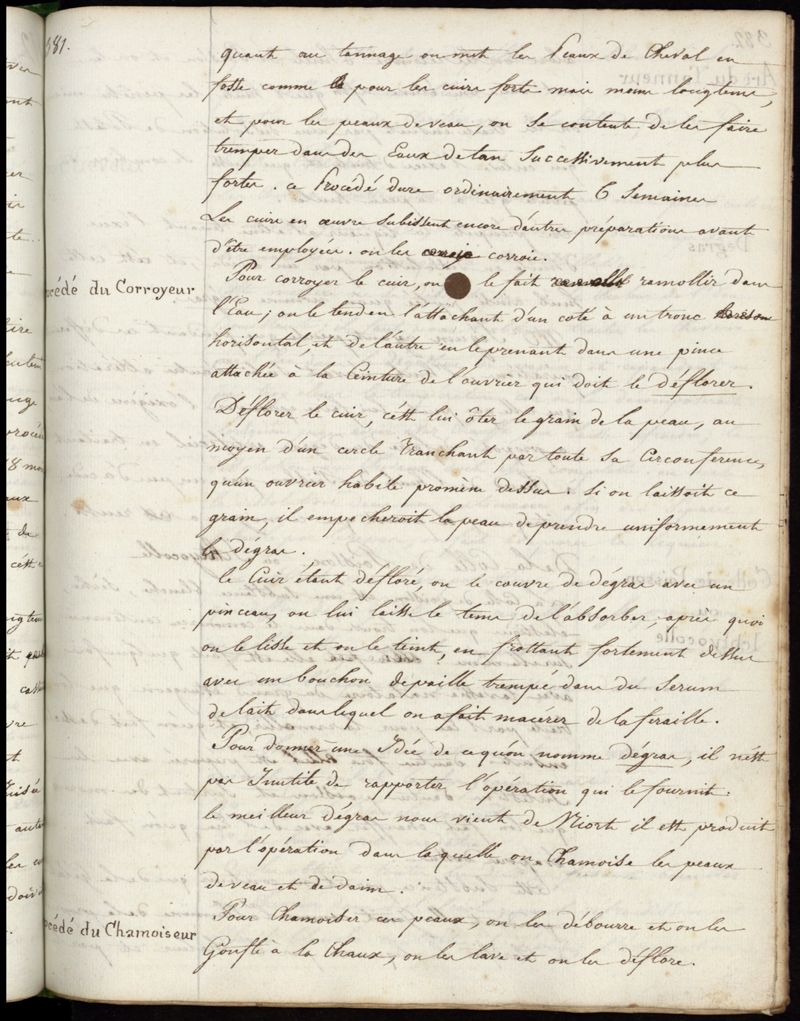 381.
quant au tannage on met les Peaux de Cheval en
fosse comme pour les cuirs forts mais moins longtems,
et pour les peaux de veau, on se contente de les faire
tremper dans des Eaux de tan Successivement plus
fortes. ce Procédé dure ordinairement 6 Semaines
Les cuirs en œuvre subissent encore d'autres préparations avant
d'être employés. on les corroie.
cédé du Corroyeur
Pour corroyer le cuir, on le fait ramollir dans
l'Eau; on le tend en l'attachant d'un coté à un tronc
horisontal, et de l'autre en le prenant dans une pince
attachée à la Ceinture de l'ouvrier qui doit le déflorer.
Déflorer le cuir, c'est lui ôter le grain de la peau, au
moyen d'un cercle Tranchant par toute sa Circonference,
qu'un ouvrier habile promène dessus. si on laissoit ce
grain, il empecheroit la peau de prendre uniformement
le dégras.
le Cuir étant défloré, on le couvre de dégras avec un
pinceau, on lui laisse le tems de l'absorber, après quoi
on le lisse et on le teint, en frottant fortement dessus
avec un bouchon de paille trempé dans du Serum
de lait dans lequel on a fait macérer de la feraille.
Pour donner une Idée de ce qu'on nomme degras, il n'est
pas Inutile de rapporter l'opération qui le fournit.
le meilleur dégras nous vient de Niort il est produit
par l'opération dans laquelle on Chamoise les peaux
de veau et de daim.
cédé du Chamoiseur
Pour Chamoiser ces peaux, on les débourre et on les
Gonfle à la Chaux, on les lave et on les déflore.